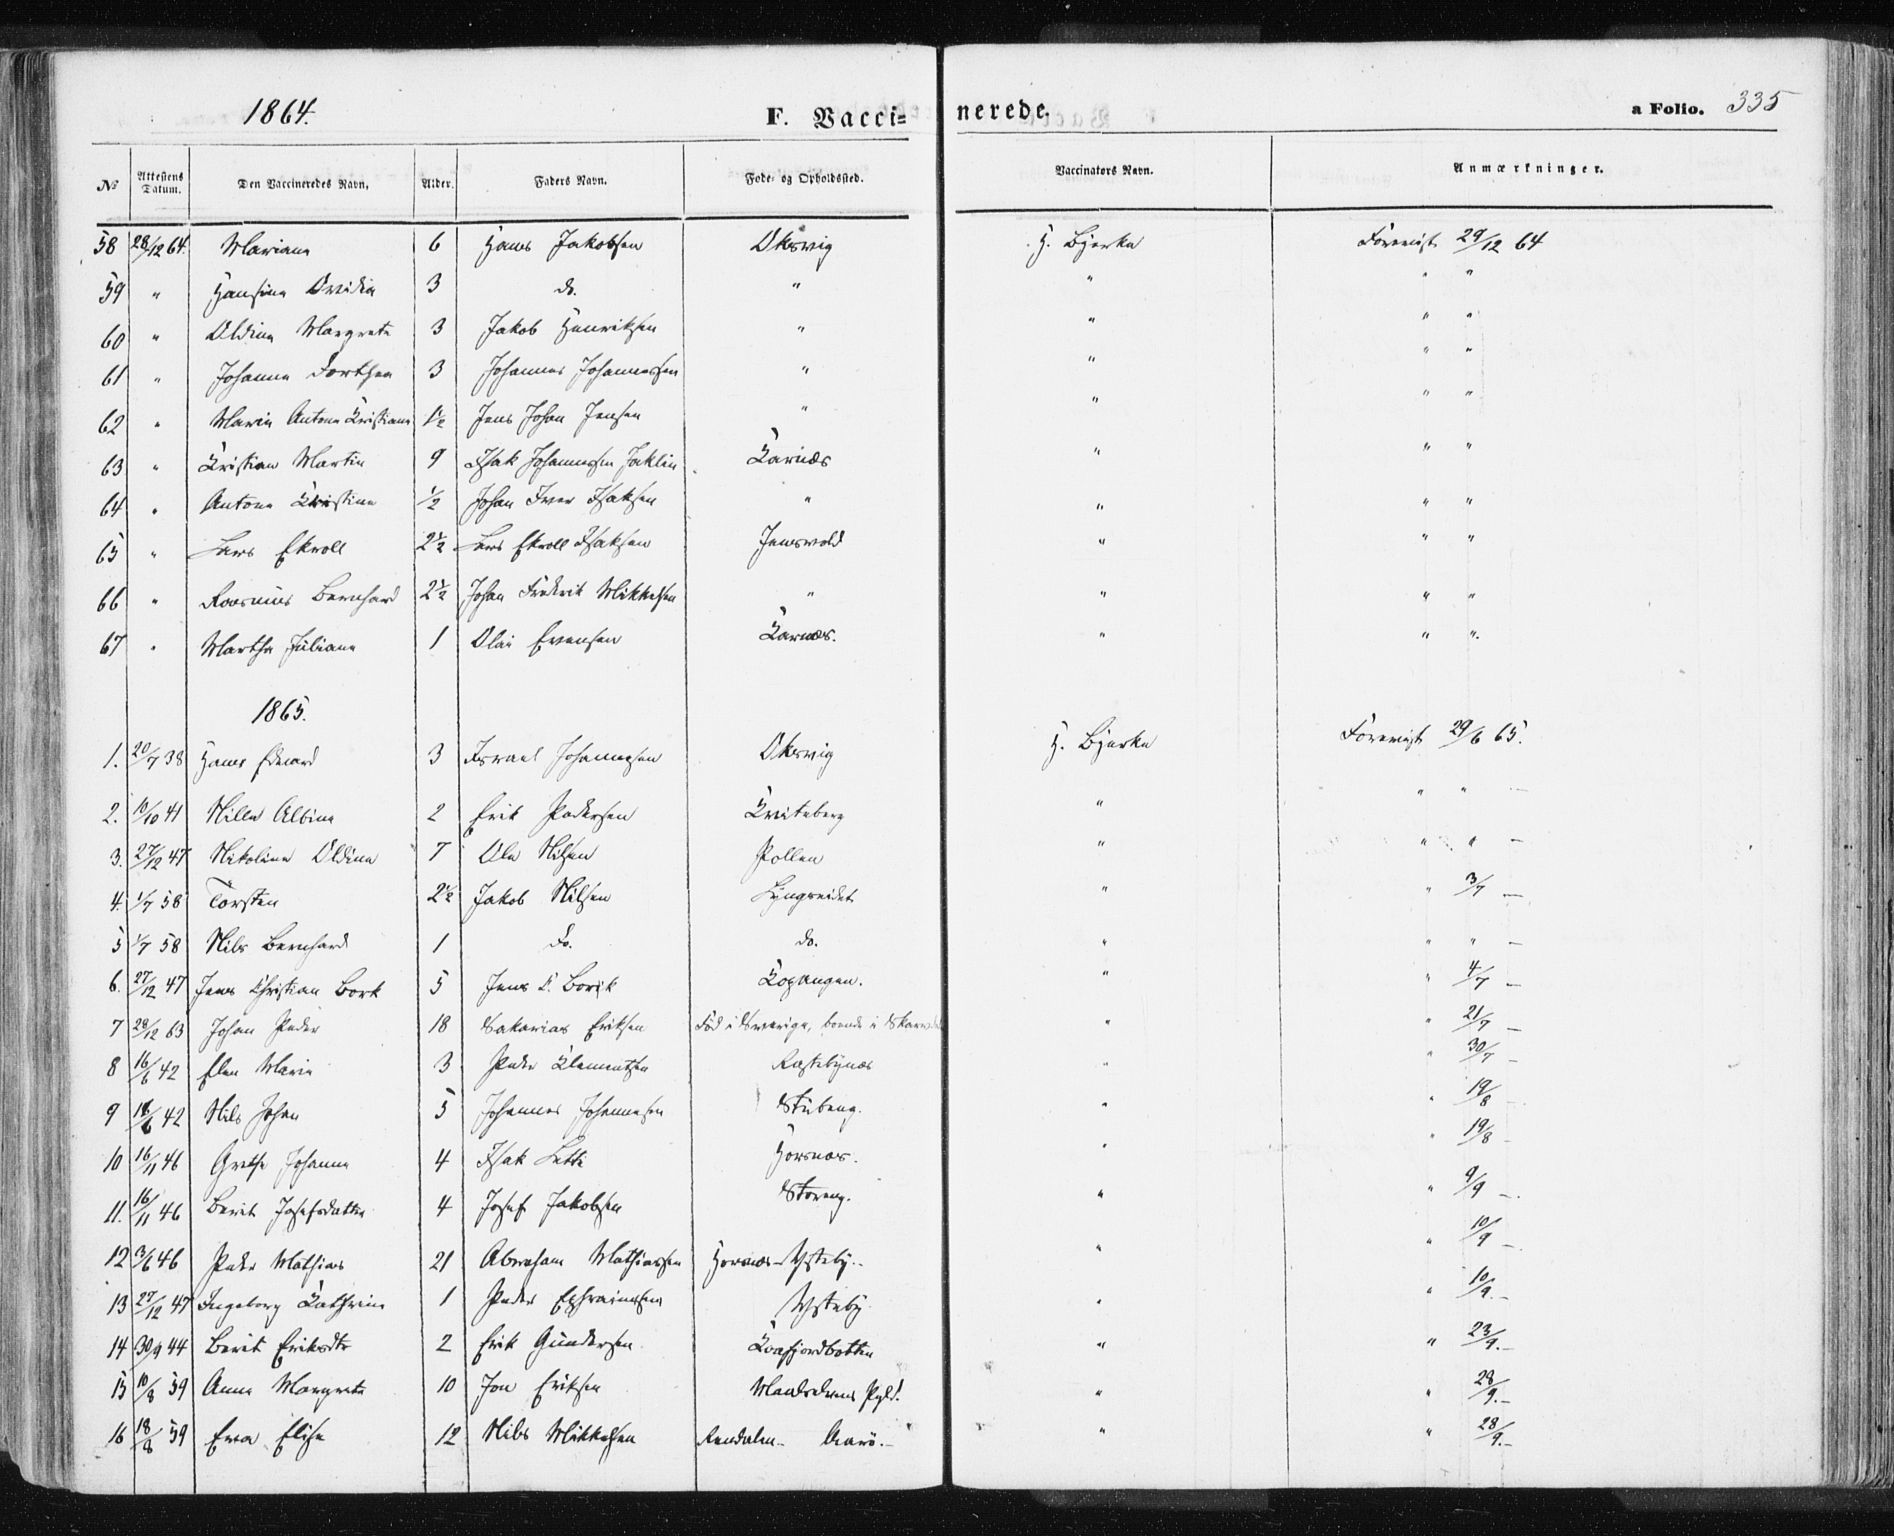 1864. F. Vacci= nerede. a Folio. 335
No Attestens Datum. Den Vaccineredes Navn. Alder. Faders Navn. Føde- og Opholdssted. Vaccinators Navn. Anmærkninger.
58 28/12 64. Mariane 6 Hans Jakobsen Oksvig H. Bjerke Forevist 29/12 64
59 " Hansine Ovidia 3 do. " " " "
60 " Oldine Margrete 3 Jakob Henriksen " " " "
61 " Johanna Dorthea 3 Johannes Johannessen " " " "
62 " Maria Antone Kristiane 1½ Jens Johan Jensen " " " "
63 " Kristian Martin 9 Isak Johannessen Joklin Karnæs " " "
64 " Antone Kristine ½ Johan Iver Isaksen " " " "
65 " Lars Ekroll 2½ Lars Ekroll Isaksen Jensvold " " "
66 " Rasmus Bernhard 2½ Johan Frederik Mikkelsen " " " "
67 " Martha Juliane 1 Olai Evensen Karnæs. " " "
1865.
1. 20/7 38 Hans Edvard 3 Israel Johannesen Oksvig H. Bjerke Forevist 29/6 65.
2. 10/10 41 Nille Albine 2 Erik Pedersen Kviteberg " " "
3. 27/12 47 Nikoline Oldine 7 Ole Nilsen Pollen " " " —
4. 1/7 58 Torsten 2½ Jakob Nilsen Lyngseidet " " 3/7 —
5 1/7 58 Nils Bernhard 1 Do. do. " " " —
6. 27/12 47 Jens Christian Bork 5 Jens C. Bork Kopangen. " " 4/7 —
7 28/12 63 Johan Peder 18 Sakarias Eriksen Föd i Sverige, boende i " " 21/7 —
8 16/6 42 Elen Marie 3 Peder Klementsen Rastebynæs " " 30/7 —
9 18/6 42 Nils Johan 5 Johannes Johannesen " " 19/8 —.
10 16/11 46 Grethe Johanne 4 Isak Horsnæs. " " 19/8 —
11. 16/11 46 Berit Josefsdatter 4 Josef Jakobsen Storeng. " " 9/9 —.
12 3/6 46 Peder Mathias 21 Abraham Mathiassen Hornæs — Ysteby.. " " 10/9 —.
13 27/12 47 Ingeborg Kathrine 1 Peder Ephraimsen Ysteby. " " 10/9.—
14 30/9 44 Berit Eriksdtr 2 Erik Gundersen Kvafjordbotten " " 23/9.—
15 10/8 59 Anne Margrete 10 Jon Eriksen Pgld. " " 28/9.—
16 18/8 59 Eva Elise 12 Nils Mikkelsen Rendalen — " " 28/9.—